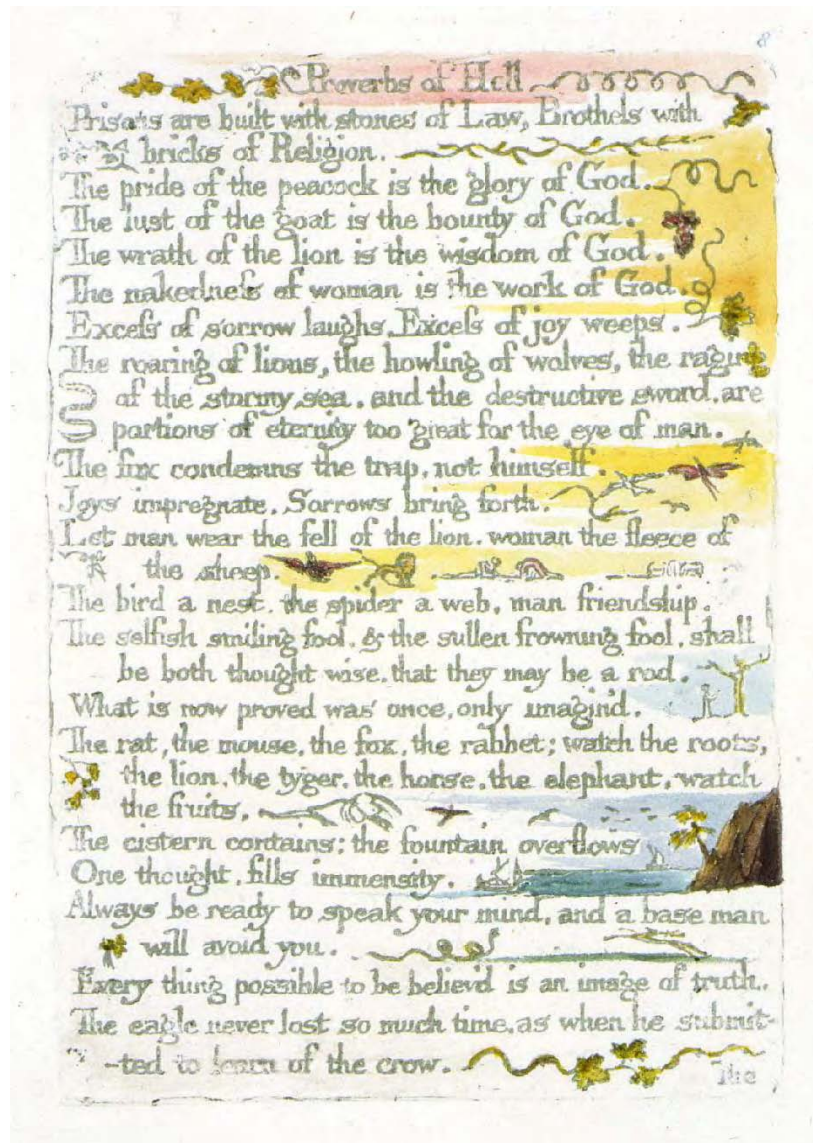 8
Proverbs of Hell
Prisons are built with stones of Law, Brothels with
bricks of Religion.
The pride of the peacock is the glory of God.
The lust of the goat is the bounty of God.
The wrath of the lion is the wisdom of God.
The nakedneſs of woman is the work of God.
Exceſs of sorrow laughs. Exceſs of joy weeps.
The roaring of lions, the howling of wolves, the raging
of the stormy sea, and the destructive sword, are
portions of eternity too great for the eye of man.
The fox condemns the trap, not himself.
Joys impregnate. Sorrows bring forth.
Let man wear the fell of the lion. woman the fleece of
the sheep.
The bird a nest, the spider a web, man friendship.
The selfish smiling fool, & the sullen frowning fool, shall
be both thought wise, that they may be a rod.
What is now proved was once, only imagin'd.
The rat, the mouse, the fox, the rabbet; watch the roots,
the lion, the tyger, the horse, the elephant, watch
the fruits.
The cistern contains: the fountain overflows
One thought, fills immensity.
Always be ready to speak your mind, and a base man
will avoid you.
Every thing possible to be believ'd is an image of truth.
The eagle never lost so much time, as when he submit-
-ted to learn of the crow.
The